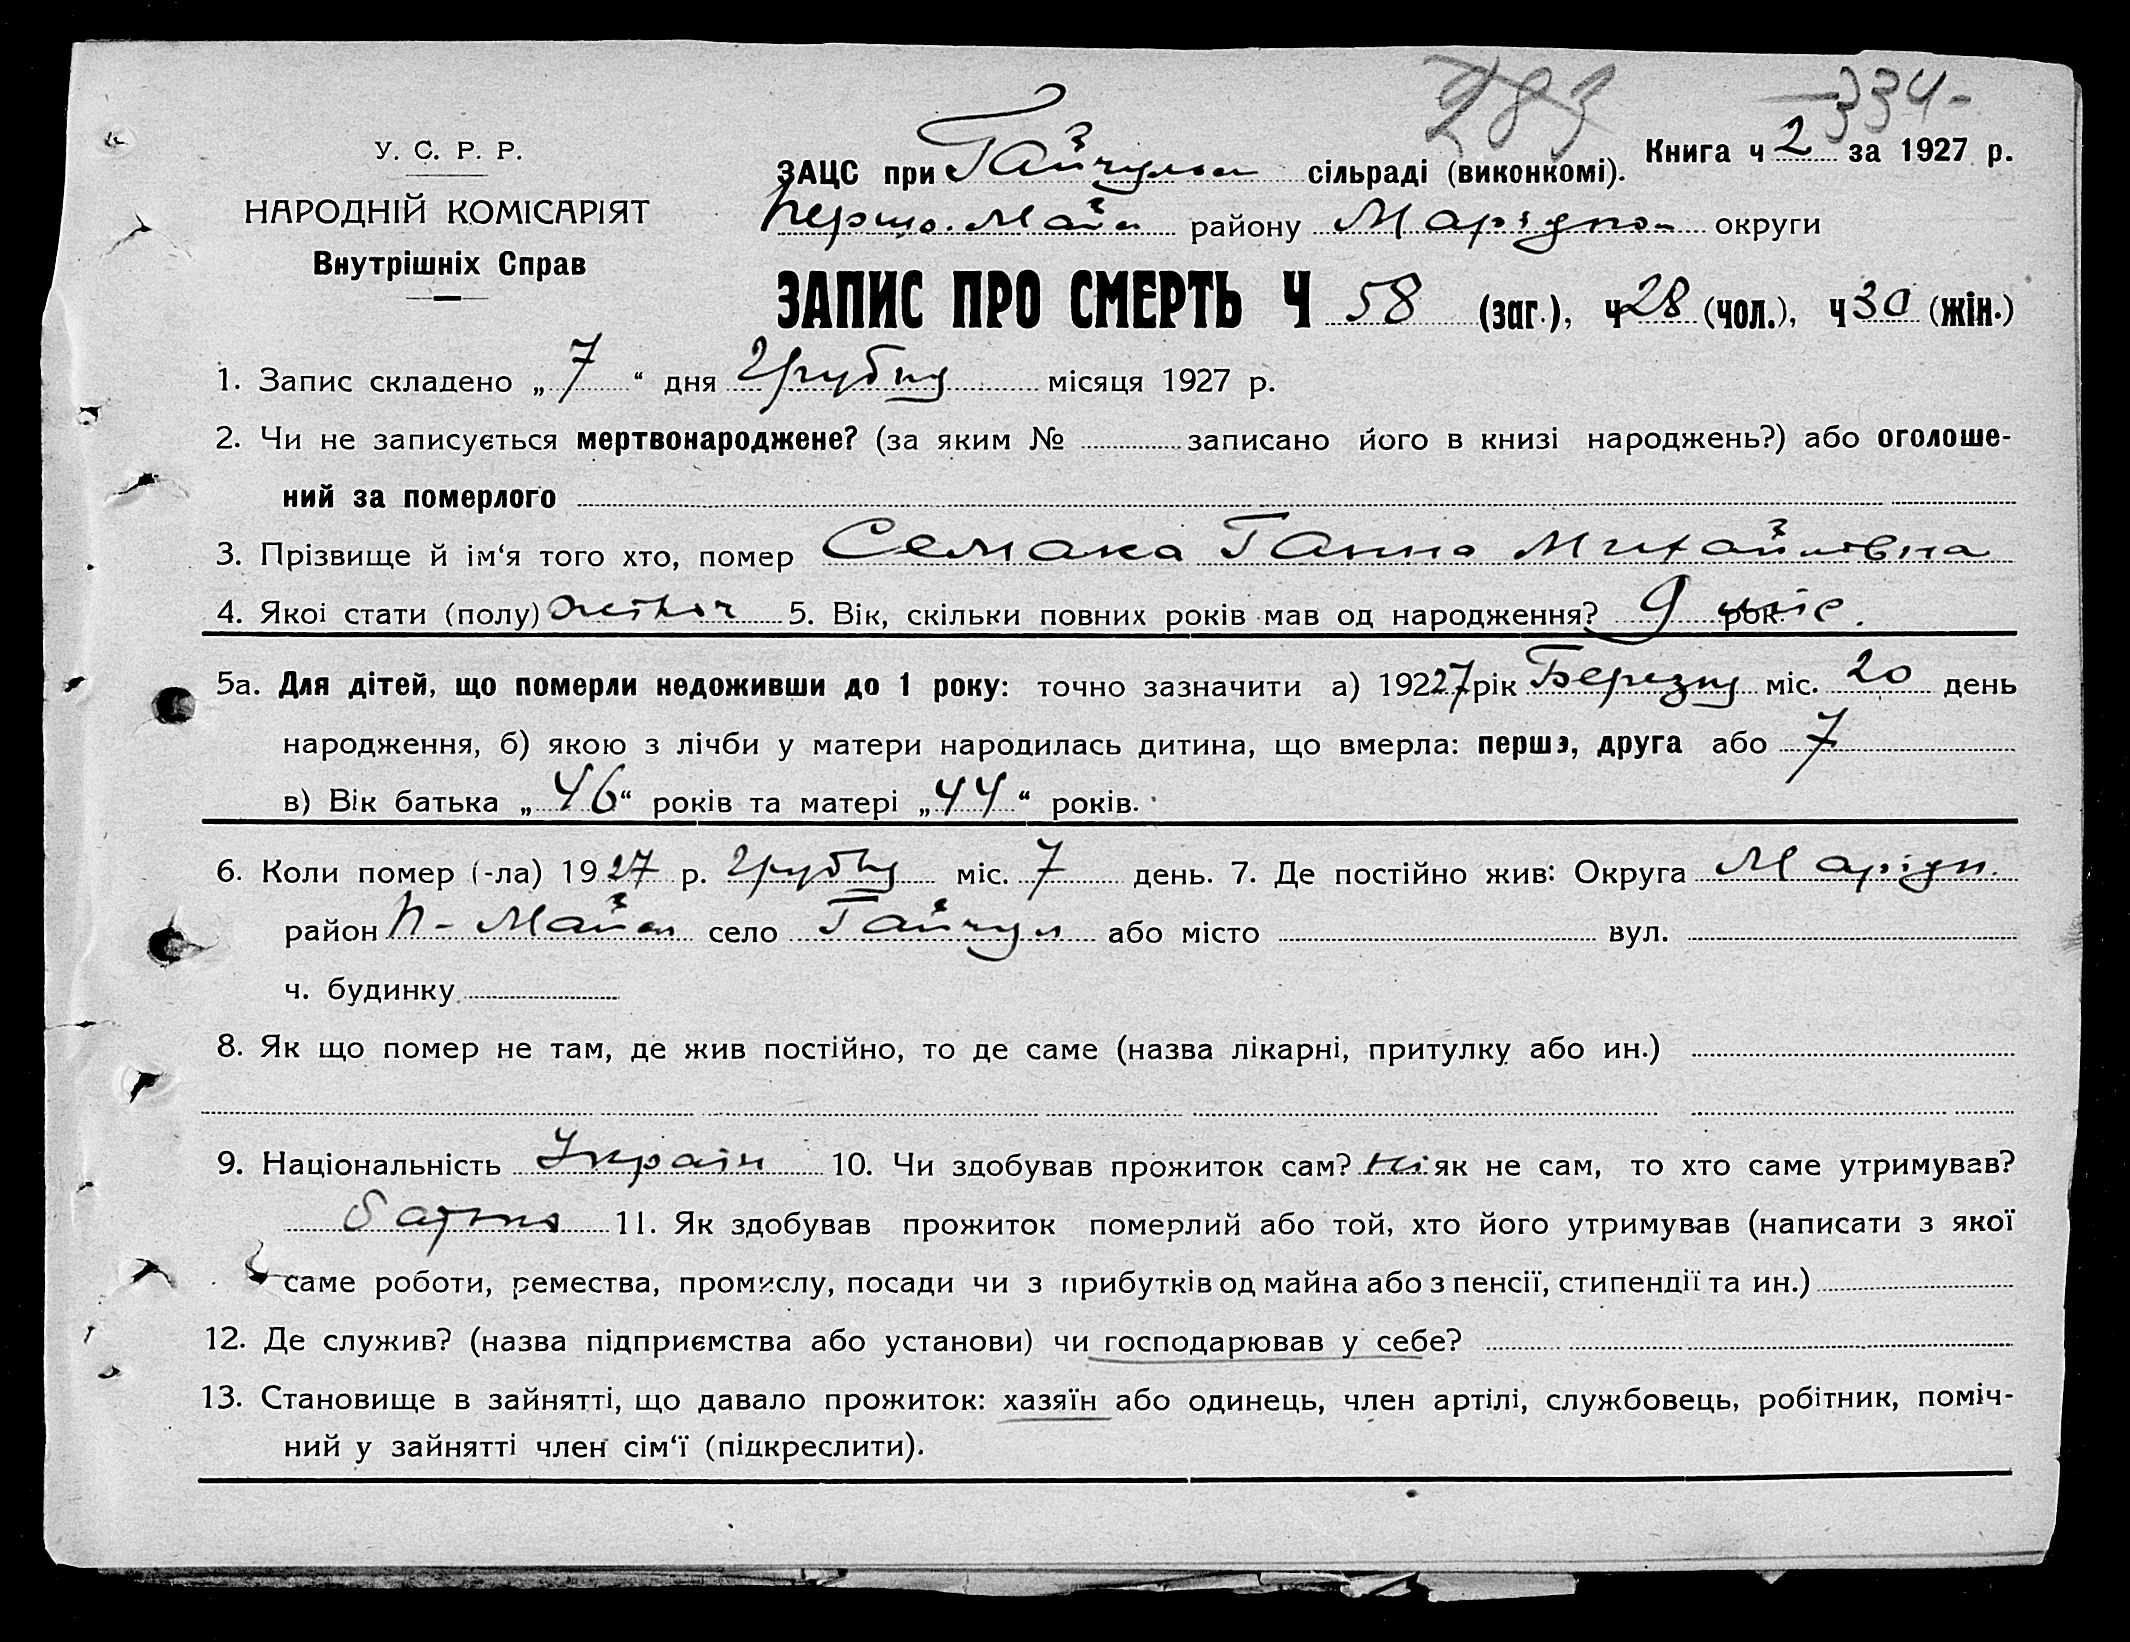 283 334-
У. С. Р. Р.
НАРОДНІЙ КОМІСАРІЯТ
Внутрішніх Справ
Книга ч 2 за 1927 р.
ЗАЦС при Гайчульск сільраді (виконкомі).
Першо-Майск району Маріупол округи
ЗАПИС ПРО СМЕРТЬ Ч 58 (заг.), ч 28 (чол.), ч 30 (жін.)
1. Запис складено „ 7 “ дня Грудня місяця 1927 р.
2. Чи не записується мертвонароджене? (за яким № записано його в книзі народжень?) або оголоше-
ний за померлого
3. Прізвище й ім‘я того хто, помер Семака Ганна Михайловна
4. Якоі стати (полу) жіноч 5. Вік, скільки повних років мав од народження? 9 міс.
5а. Для дітей, що померли недоживши до 1 року: точно зазначити а) 1927 рік Березня міс. 20 день
народження, б) якою з лічби у матери народилась дитина, що вмерла: перша, друга або 7
в) Вік батька „ 46 “ років та матері „ 44 “ років.
6. Коли помер (-ла) 1927 р. Грудня міс. 7 день. 7. Де постійно жив: Округа Маріуп.
район П-Майск село Гайчул або місто вул.
ч. будинку
8. Як що помер не там, де жив постійно, то де саме (назва лікарні, притулку або ин.)
9. Національність Україн 10. Чи здобував прожиток сам? ні як не сам, то хто саме утримував?
батько 11. Як здобував прожиток померлий або той, хто його утримував (написати з якої
саме роботи, ремества, промислу, посади чи з прибутків од майна або з пенсії, стипендії та ин.)
12. Де служив? (назва підприємства або установи) чи господарював у себе?
13. Становище в зайнятті, що давало прожиток: хазяїн або одинець, член артілі, службовець, робітник, поміч-
ний у зайнятті член сім‘ї (підкреслити).